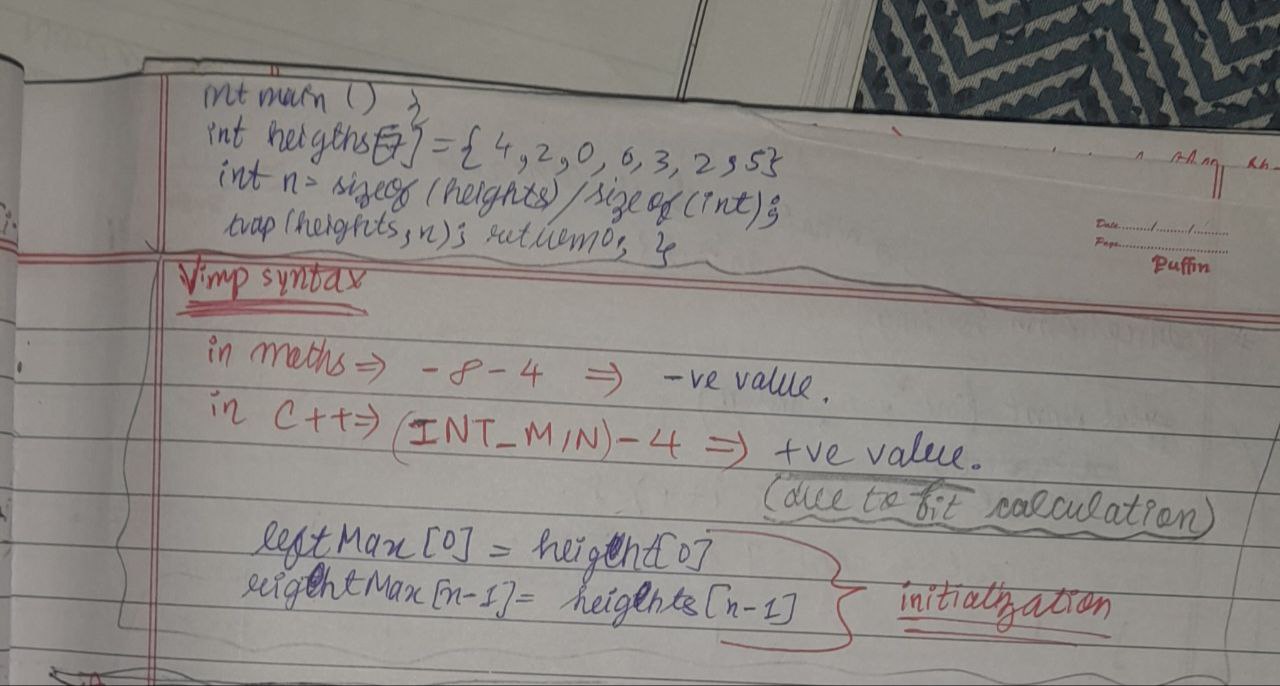 int main () }
int heigths[7] = { 4, 2, 0, 6, 3, 2, 5}
int n = sizeof (heights) / sizeof (int);
trap (heights, n); return 0; }
Date....../....../......
Page....................
Puffin
Vimp syntax
in maths ⇒ - 8 - 4 ⇒ -ve value.
in C++ ⇒ (INT_MIN) - 4 ⇒ +ve value.
(due to bit calculation)
leftMax [0] = height[0]
rightMax [n-1] = heights [n-1]
initialization